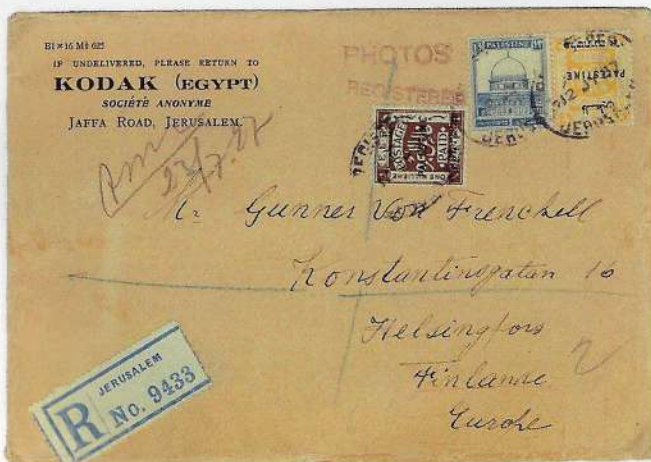 E1 × 16 M1 625
IF UNDELIVERED, PLEASE RETURN TO
KODAK (EGYPT)
SOCIÉTÉ ANONYME
JAFFA ROAD, JERUSALEM.
PHOTOS
REGISTERED
13 PALESTINE
PALESTINE
POSTAGE PAID
ONE MILLIEME
23/7.27
Mr Gunner Von Frenckell
Konstantinsgatan 16
Helsingfors
Finlande
Europe
JERUSALEM
R No. 9433